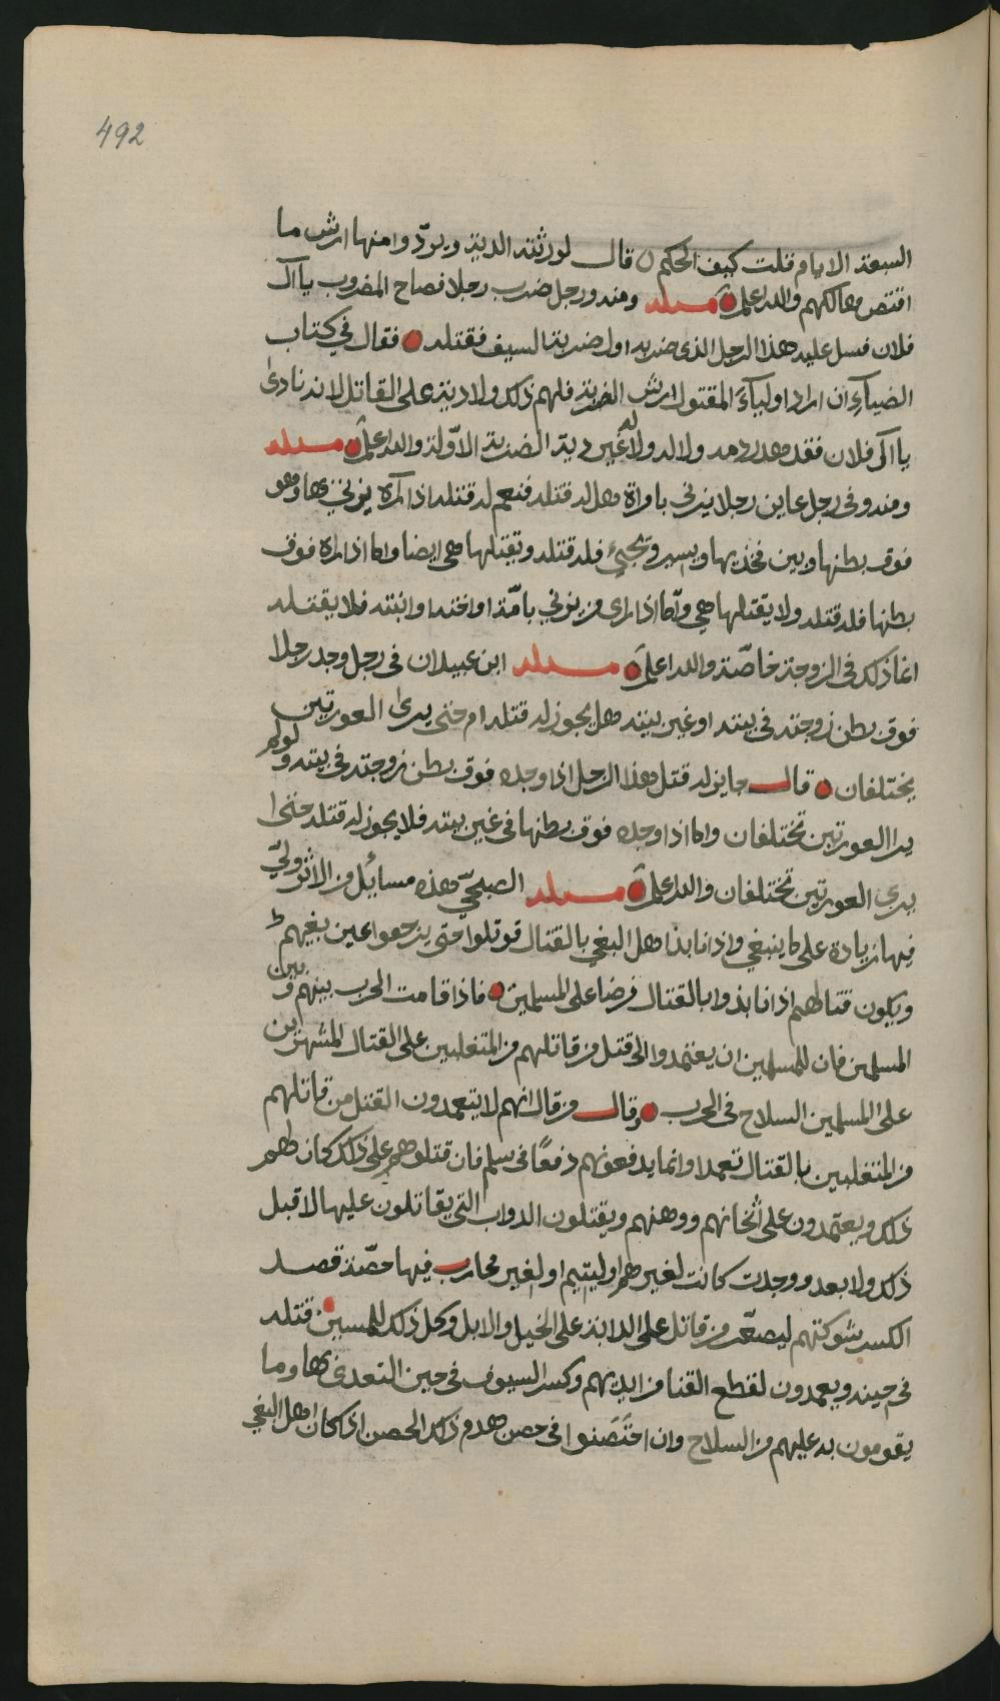 492
السبعة الايام قلت كيف الحكم ه قال لورثته الدية ويردوا منها ارش ما
اقتص مما لكهم والله اعلم ه مسئله ومنه ورجل ضرب رجلا فصاح المضروب يا آل
فلان فسل عليه هذا الرجل الذى ضربه اول ضربة بالسيف فقتله ه فقال فى كتاب
الضياء ان اراد اولياء المقتول ارش الضربة فلهم ذلك ولا دية على القاتل لانه نادى
يا آل فلان فقد هدر دمه ولا له ولا غير دية الضربة الاولة والله اعلم ه مسئله
ومنه وفى رجل عاين رجلا يزنى بامراة هل له قتله فنعم له قتله اذا رآه يزنى بها وهو
فوق بطنها وبين فخذيها ويسير ويجيء فله قتله ويقتلها هى ايضا واما اذا رآه فوق
بطنها فله قتله ولا يقتلها هى واما اذا راى من يزنى بامه او اخته او ابنته فلا يقتله
انما ذلك فى الزوجة خاصة والله اعلم ه مسئله ابن عبيدان فى رجل وجد رجلا
فوق بطن زوجته فى بيته او غير بيته هل يجوز له قتله ام حتى يرى العورتين
يختلفان ه قال جايز له قتل هذا الرجل اذا وجده فوق بطن زوجته فى بيته ولو لم
يرا العورتين تختلفان واما اذا وجده فوق بطنها فى غير بيته فلا يجوز له قتله حتى
يرى العورتين تختلفان والله اعلم ه مسئله الصبحى هذه مسائل من الاثر ولى
فيها زيادة على ما ينبغى واذا نابذنا هل البغى بالقتال قوتلوا حتى يرجعوا عن بغيهم
ويكون قتالهم اذا نابذوا بالقتال فرضا على المسلمين ه فاذا قامت الحرب بينهم وبين
المسلمين فان للمسلمين ان يعتمدوا الى قتل من قاتلهم من المتغلبين على القتال المشهرين
على المسلمين السلاح فى الحرب ه وقال من قال انهم لا يتعمدون القتل من قاتلهم
من المتغلبين بالقتال تعمدا وانما يدفعونهم دفعًا فى سلم فان قتلوهم على ذلك كان لهم
ذلك ويعتمدون على اثخانهم ووهنهم ويقتلون الدواب التى يقاتلون عليها لا قبل
ذلك ولا بعد ووجدت كانت لغيرهم او ليتيم او لغير محارب فيها حصة قصد
الكسر شوكتهم ليصغر من قاتل على الدابة على الخيل والابل وكل ذلك للمسلمين قتله
فى حينه ويعمدون لقطع القنا من ايديهم وكسر السيوف فى حين التعدى بها وما
يقومون به عليهم من السلاح وان احتصنوا فى حصن هدم ذلك الحصن اذا كان اهل البغى